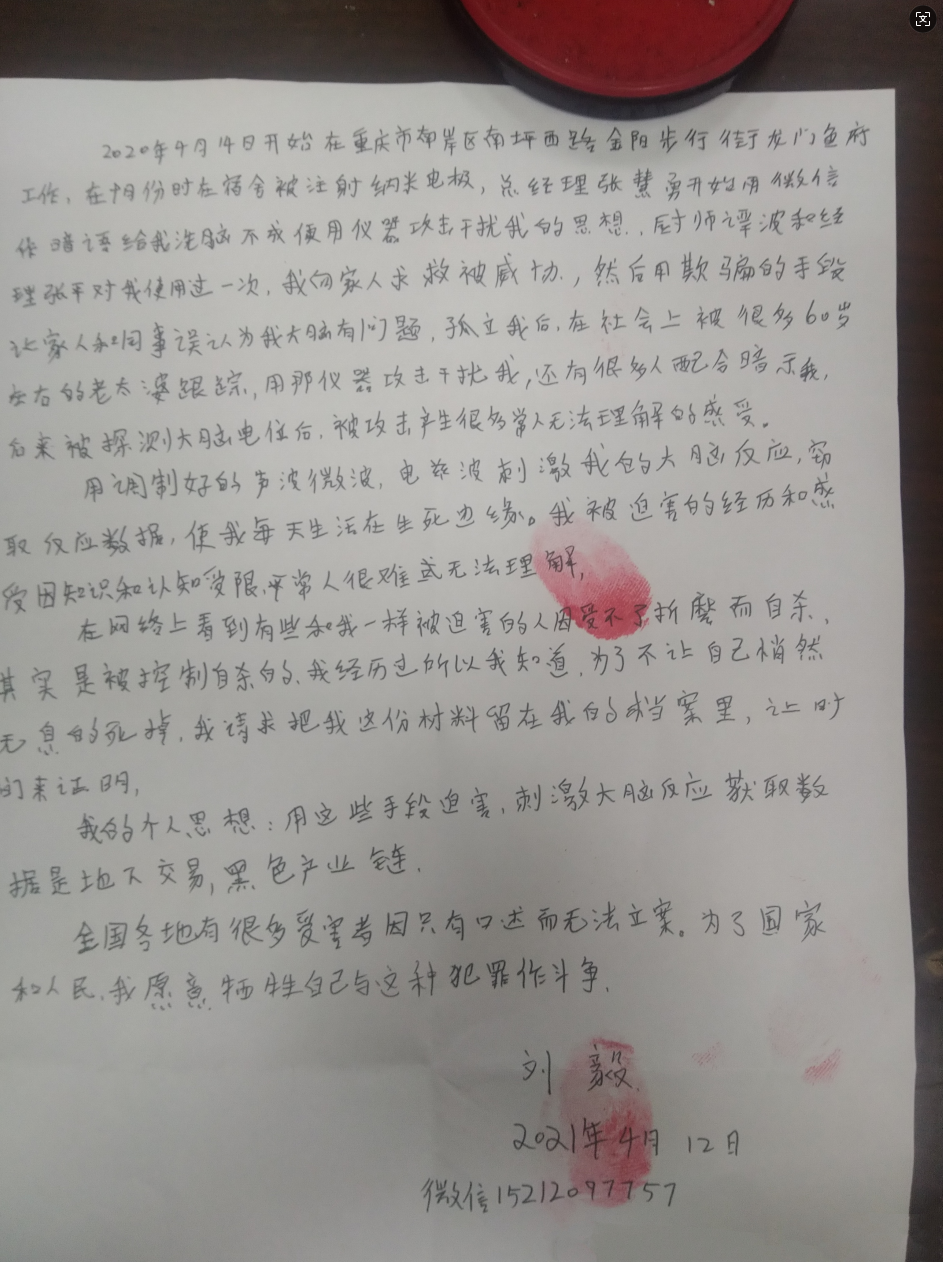 2020年9月14日开始在重庆市南岸区南坪西路金阳步行街龙门鱼府
工作，在9月份时在宿舍被注射纳米电极，总经理张慧勇开始用微信
作暗语给我洗脑不成使用仪器攻击干扰我的思想，厨师谭波和经
理张平对我使用过一次，我向家人求救被威协，然后用欺骗的手段
让家人和同事误认为我大脑有问题，孤立我后，在社会上被很多60岁
左右的老太婆跟踪，用那仪器攻击干扰我，还有很多人配合暗示我，
后来被探测大脑电位后，被攻击产生很多常人无法理解的感受。
用调制好的声波微波，电兹波刺激我的大脑反应，窃
取反应数据，使我每天生活在生死边缘。我被迫害的经历和感
受因知识和认知受限，平常人很难或无法理解，
在网络上看到有些和我一样被迫害的人因受不了折磨而自杀、
其实是被控制自杀的、我经历过所以我知道，为了不让自己悄然
无息的死掉，我请求把我这份材料留在我的档案里，让时
间来证明，
我的个人思想：用这些手段迫害，刺激大脑反应获取数
据是地下交易，黑色产业链．
全国各地有很多受害者因只有口述而无法立案。为了国家
和人民、我愿意牺牲自己与这种犯罪作斗争．
刘毅
2021年4月12日
微信15212097757